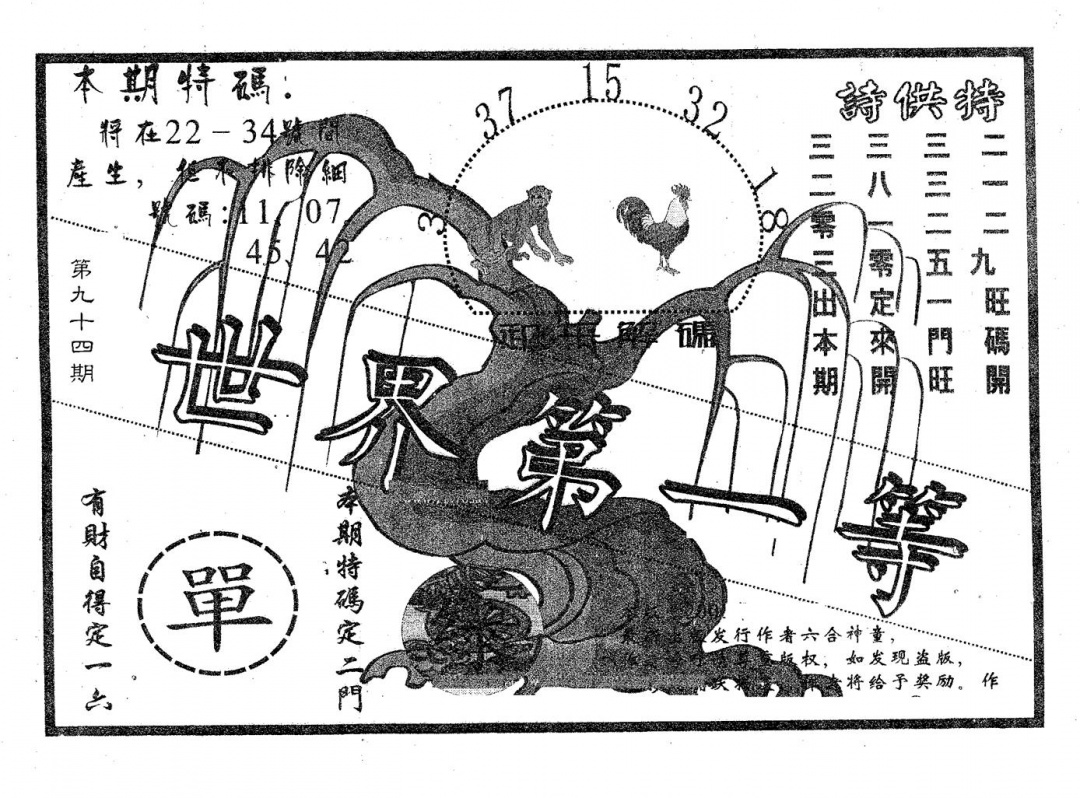 本期特碼：
將在22－34號間
產生，但不排除細
號碼：11、07、
45、42
第九十四期
37 15 32
18
特供詩
二一二九旺碼開
三三二五一門旺
三八一零定來開
三二零三出本期
解碼
世界第一等
本期特碼定二門
有財自得定一六
單
发行作者六合神童，
版权，如发现盗版，
将给予奖励。作